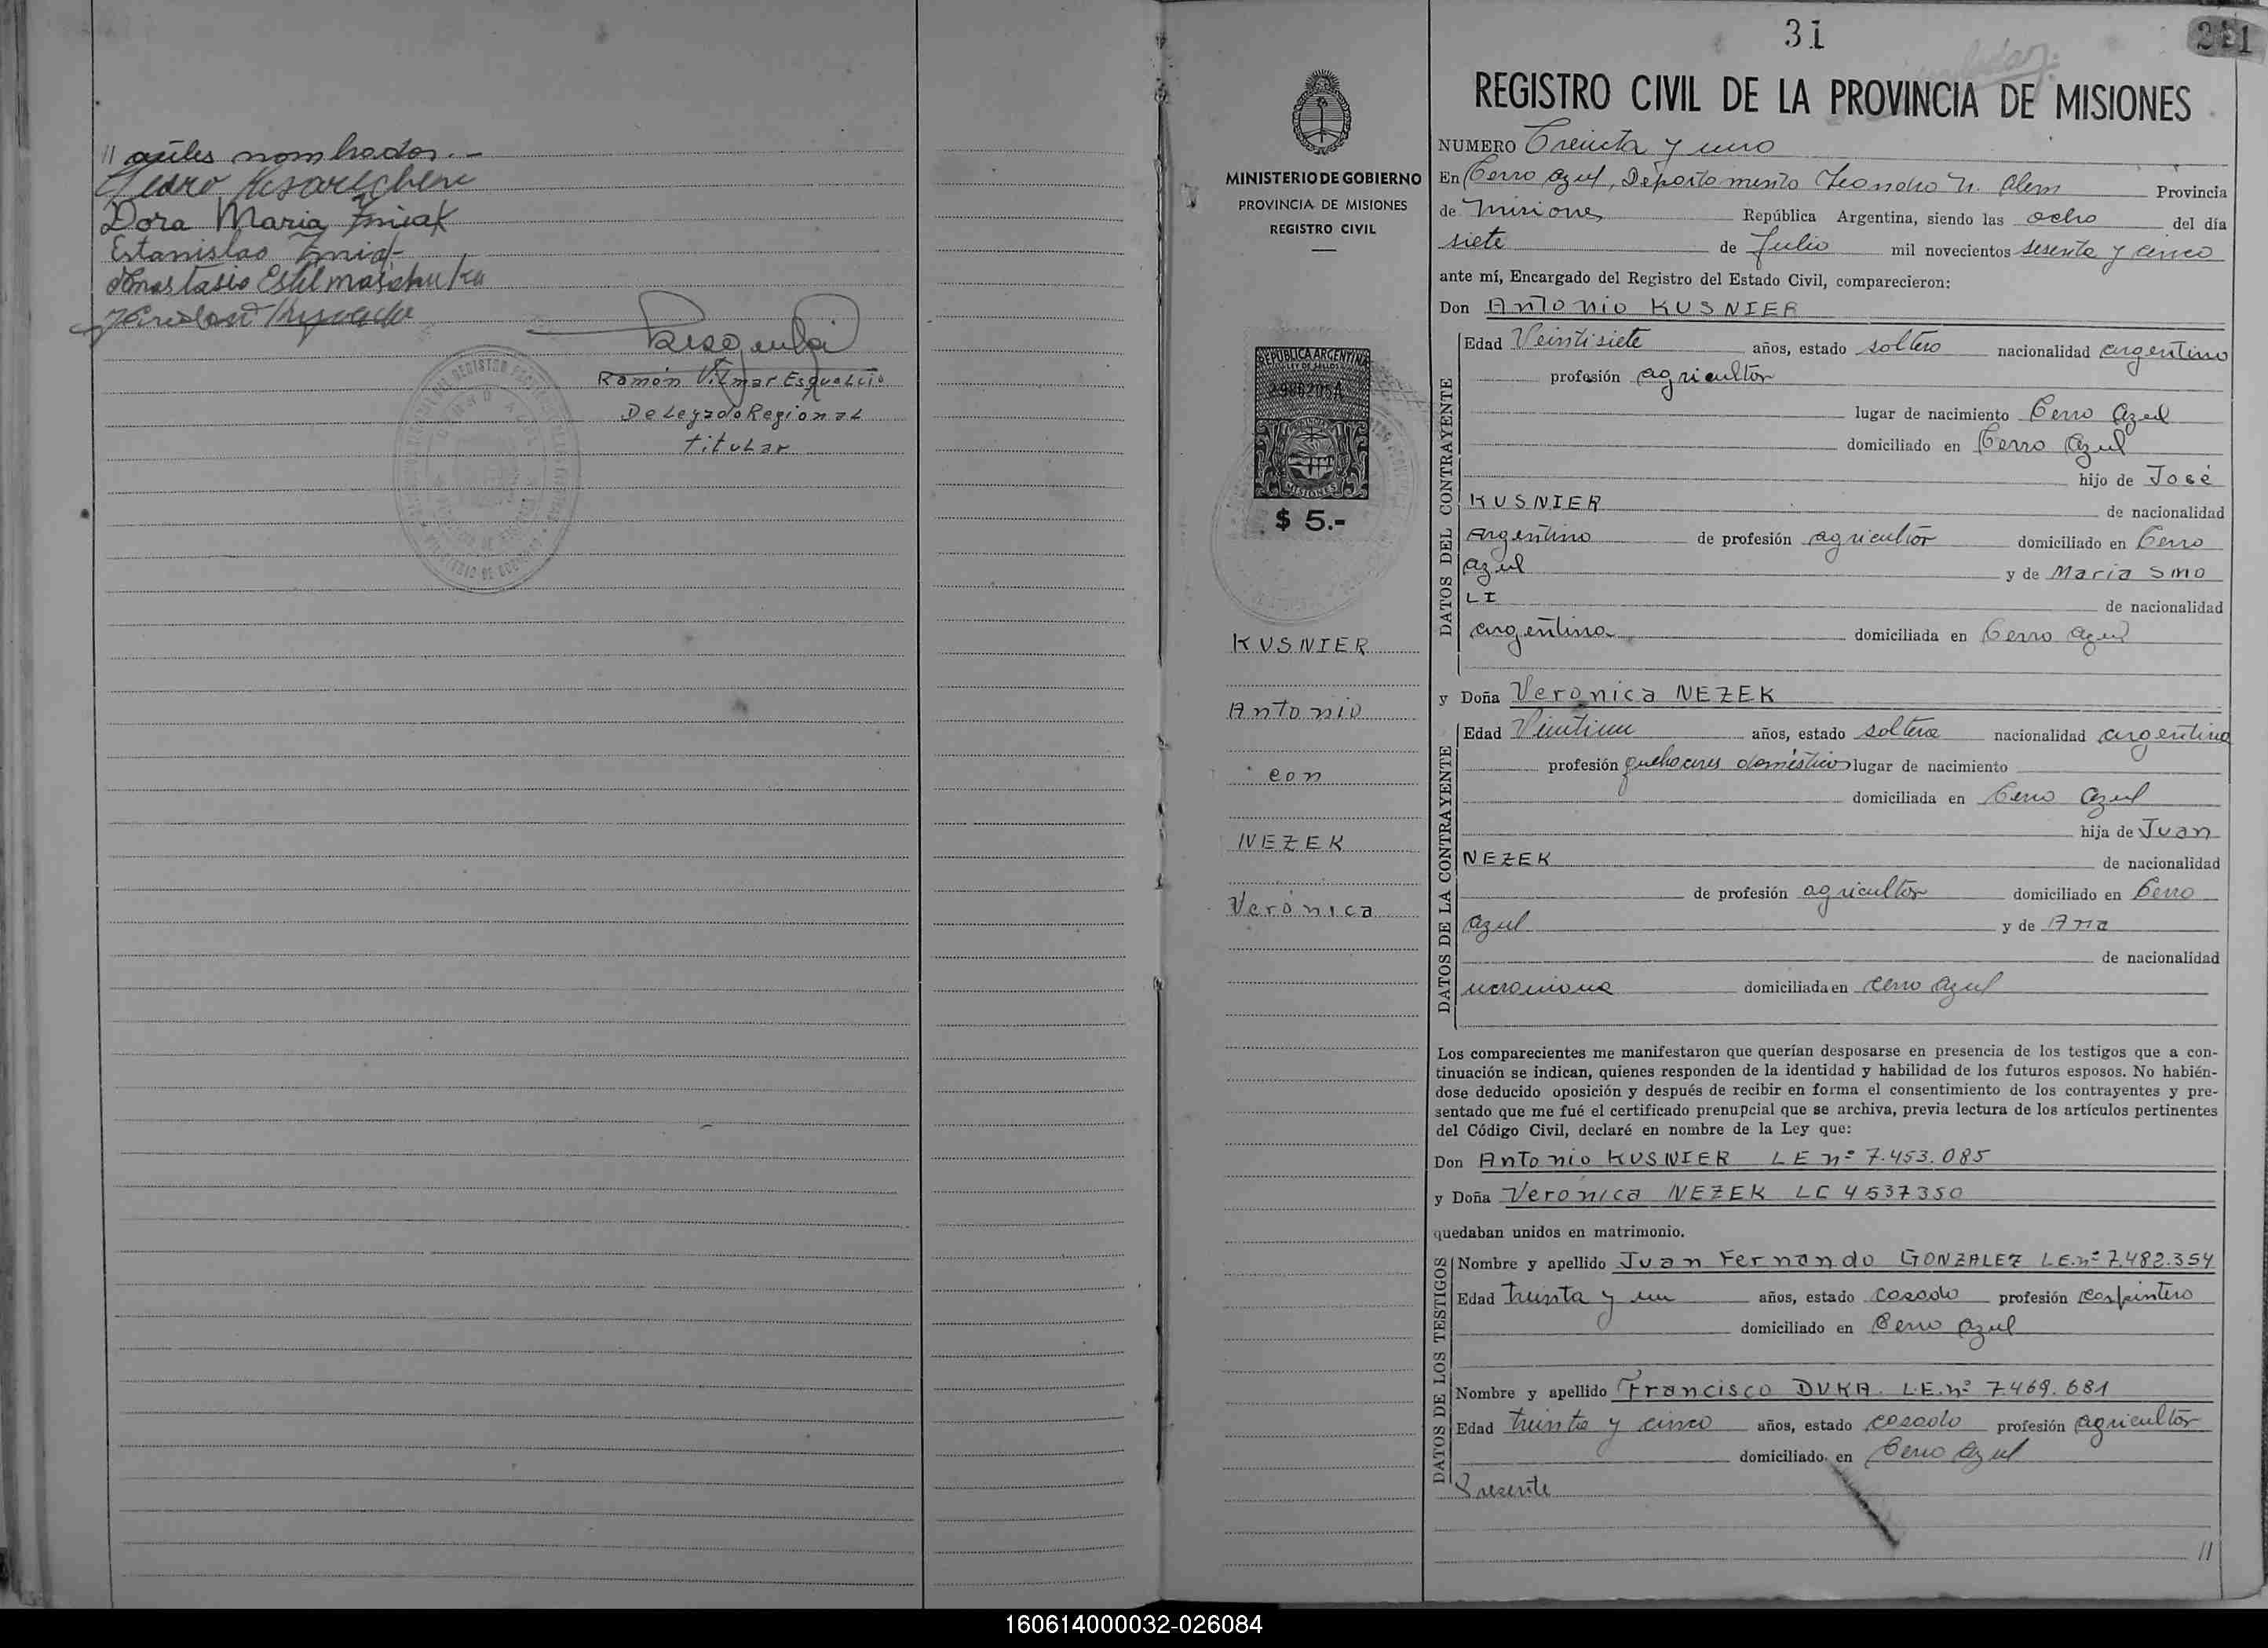 // aúles nombrados.-
Pedro
Dora Maria Zmiak
Estanislao
Anastasio
Ramón Vilmar Esquelcio
Delegado Regional
titular
MINISTERIO DE GOBIERNO
PROVINCIA DE MISIONES
REGISTRO CIVIL
REPUBLICA ARGENTINA
LEY DE SELLOS
MISIONES
$ 5.-
KUSNIER
Antonio
con
NEZEK
Verónica
31
REGISTRO CIVIL DE LA PROVINCIA DE MISIONES
NUMERO Treinta y uno
En Cerro Azul, Departamento Leandro N. Alem Provincia
de Misiones República Argentina, siendo las ocho del día
siete de Julio mil novecientos sesenta y cinco
ante mí, Encargado del Registro del Estado Civil, comparecieron:
Don Antonio KUSNIER
DATOS DEL CONTRAYENTE
Edad Veintisiete años, estado soltero nacionalidad argentino
profesión agricultor
lugar de nacimiento Cerro Azul
domiciliado en Cerro Azul
hijo de José
KUSNIER de nacionalidad
argentino de profesión agricultor domiciliado en Cerro
Azul y de Maria SMO
LI de nacionalidad
argentina domiciliada en Cerro Azul
y Doña Veronica NEZEK
DATOS DE LA CONTRAYENTE
Edad Veintiun años, estado soltera nacionalidad argentina
profesión quehaceres domésticos lugar de nacimiento
domiciliada en Cerro Azul
hija de Juan
NEZEK de nacionalidad
de profesión agricultor domiciliado en Cerro
Azul y de Ana
de nacionalidad
ucraniana domiciliada en Cerro Azul
Los comparecientes me manifestaron que querían desposarse en presencia de los testigos que a con-
tinuación se indican, quienes responden de la identidad y habilidad de los futuros esposos. No habién-
dose deducido oposición y después de recibir en forma el consentimiento de los contrayentes y pre-
sentado que me fué el certificado prenupcial que se archiva, previa lectura de los artículos pertinentes
del Código Civil, declaré en nombre de la Ley que:
Don Antonio KUSNIER LE nº 7.453.085
y Doña Veronica NEZEK LC 4537350
quedaban unidos en matrimonio.
DATOS DE LOS TESTIGOS
Nombre y apellido Juan Fernando GONZALEZ LE.nº 7.482.354
Edad treinta y un años, estado casado profesión carpintero
domiciliado en Cerro Azul
Nombre y apellido Francisco DUKA. L.E.nº 7.469.681
Edad treinta y cinco años, estado casado profesión agricultor
domiciliado en Cerro Azul
Presente
//
160614000032-026084